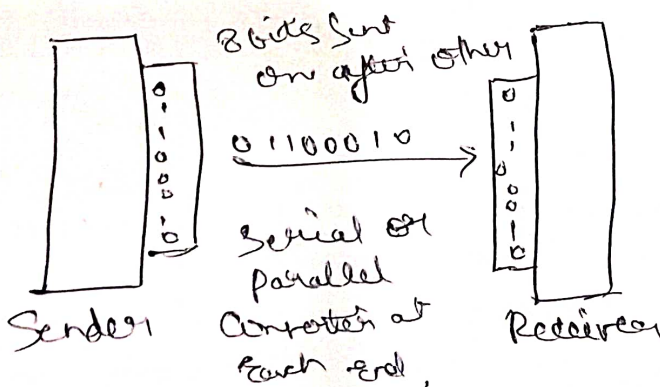 8 bits Sent
on after other
0
1
1
0
0
0
1
0
0 1 1 0 0 0 1 0
0
1
1
0
0
0
1
0
Serial or
parallel
Converter at
Each end.
Sender
Receiver